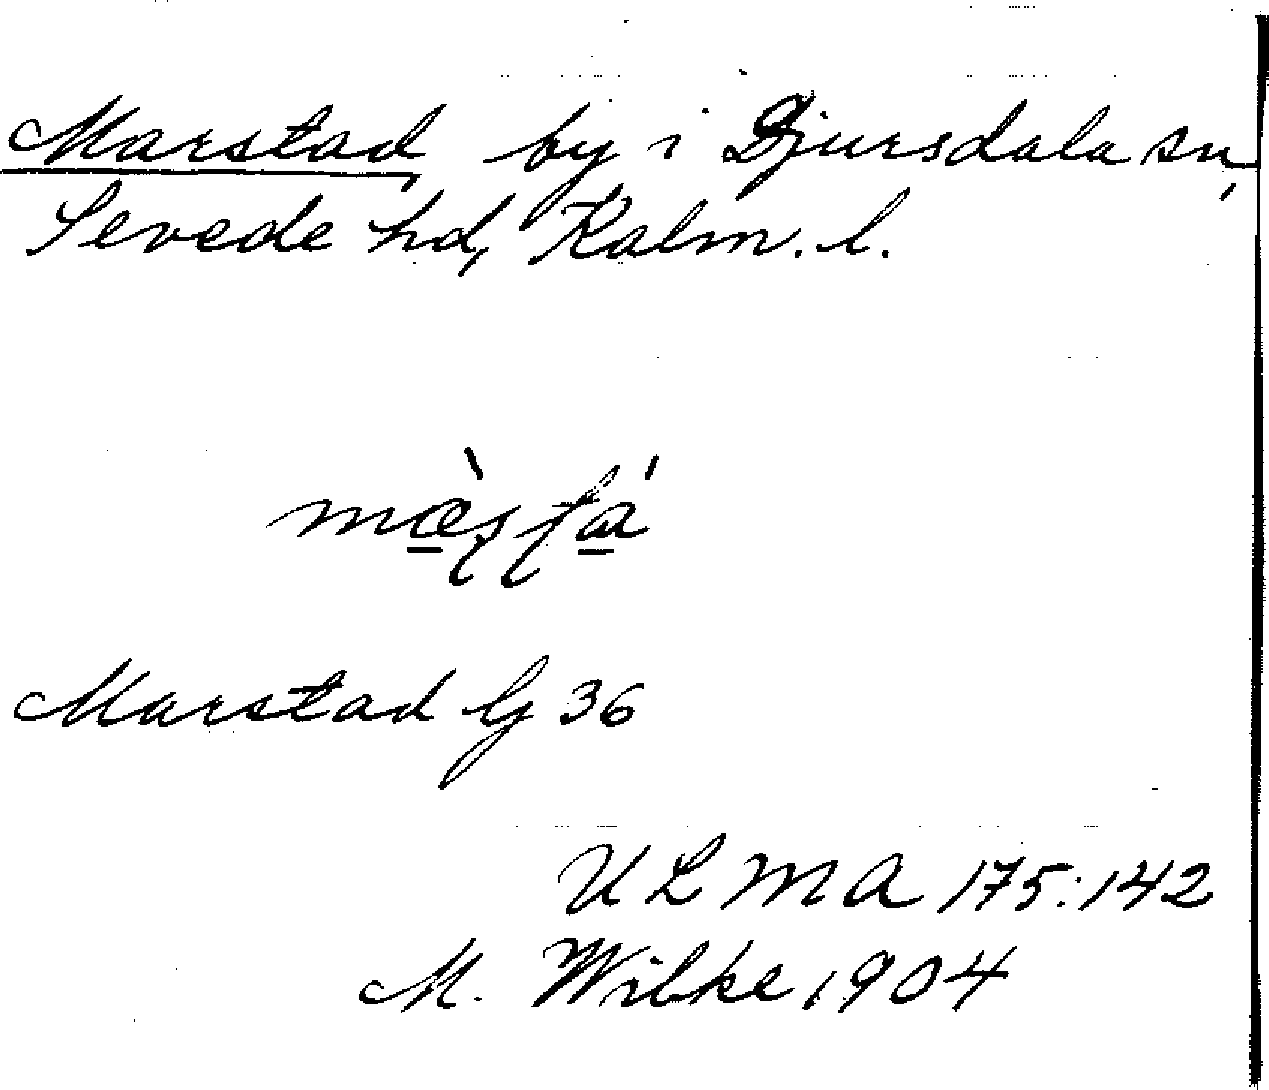 Marstad, by i Djursdala sn,
Sevede hd, Kalm. l.
Marstad G 36
ULMA 175:142
M. Wibke 1904